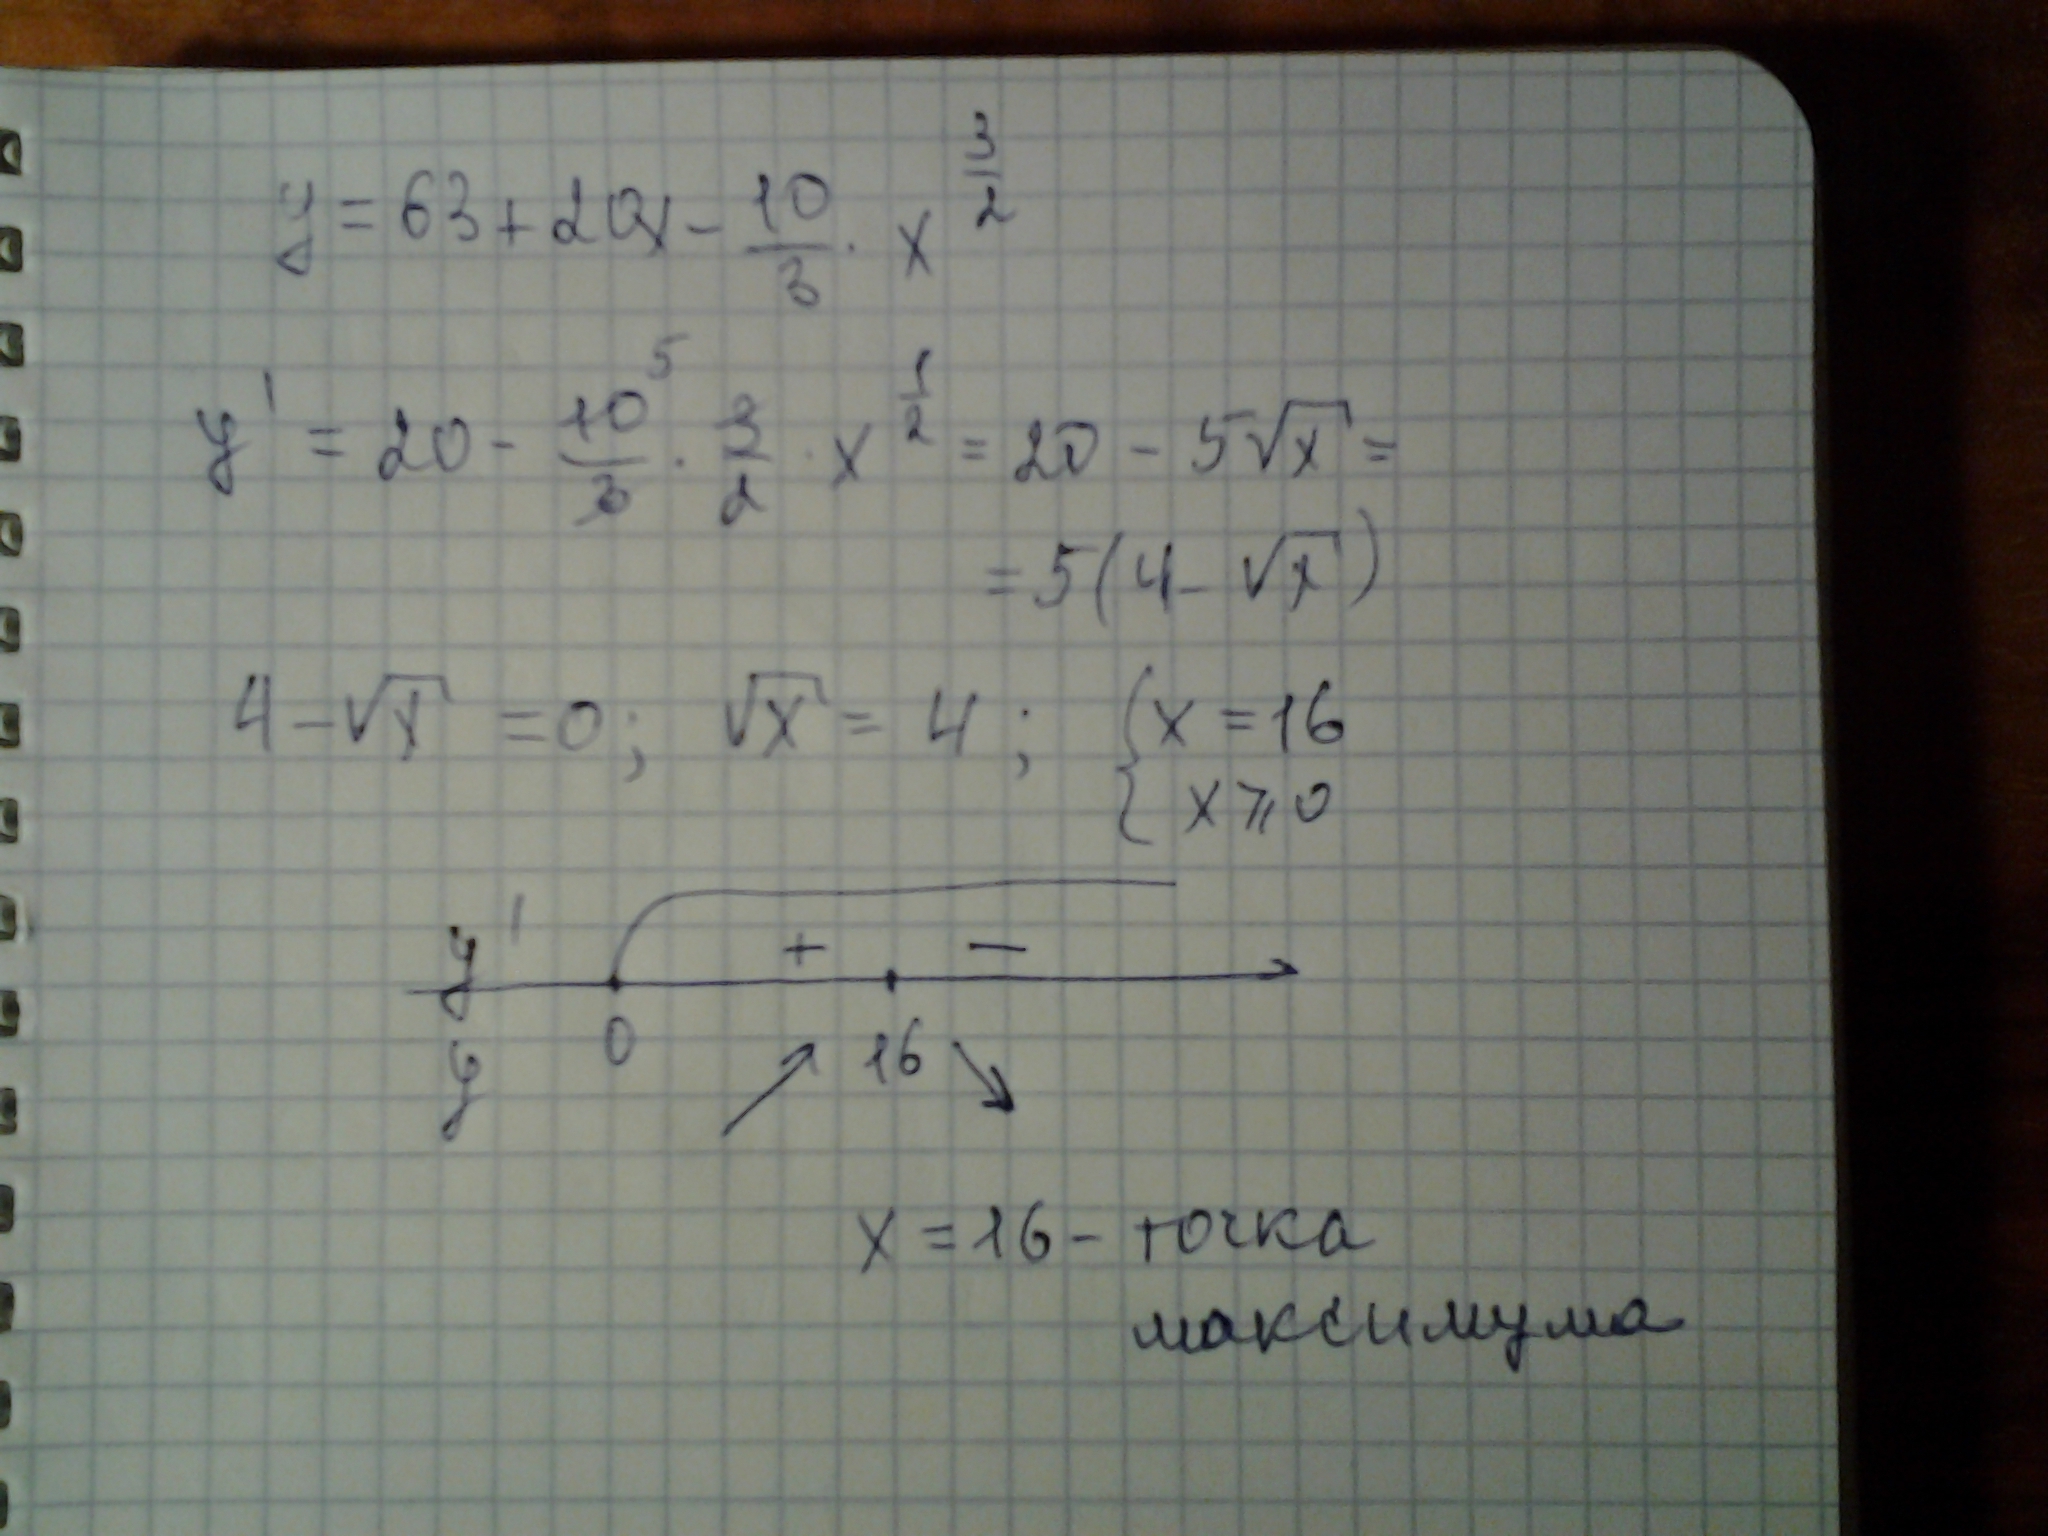 y = 63 + 20x - 10/3 · x^(3/2)
y' = 20 - 10/3 · 3/2 · x^(1/2) = 20 - 5√x =
5
= 5(4 - √x)
4 - √x = 0; √x = 4; { x = 16
x ≥ 0
y' + -
0 16
y
x = 16 - точка
максимума